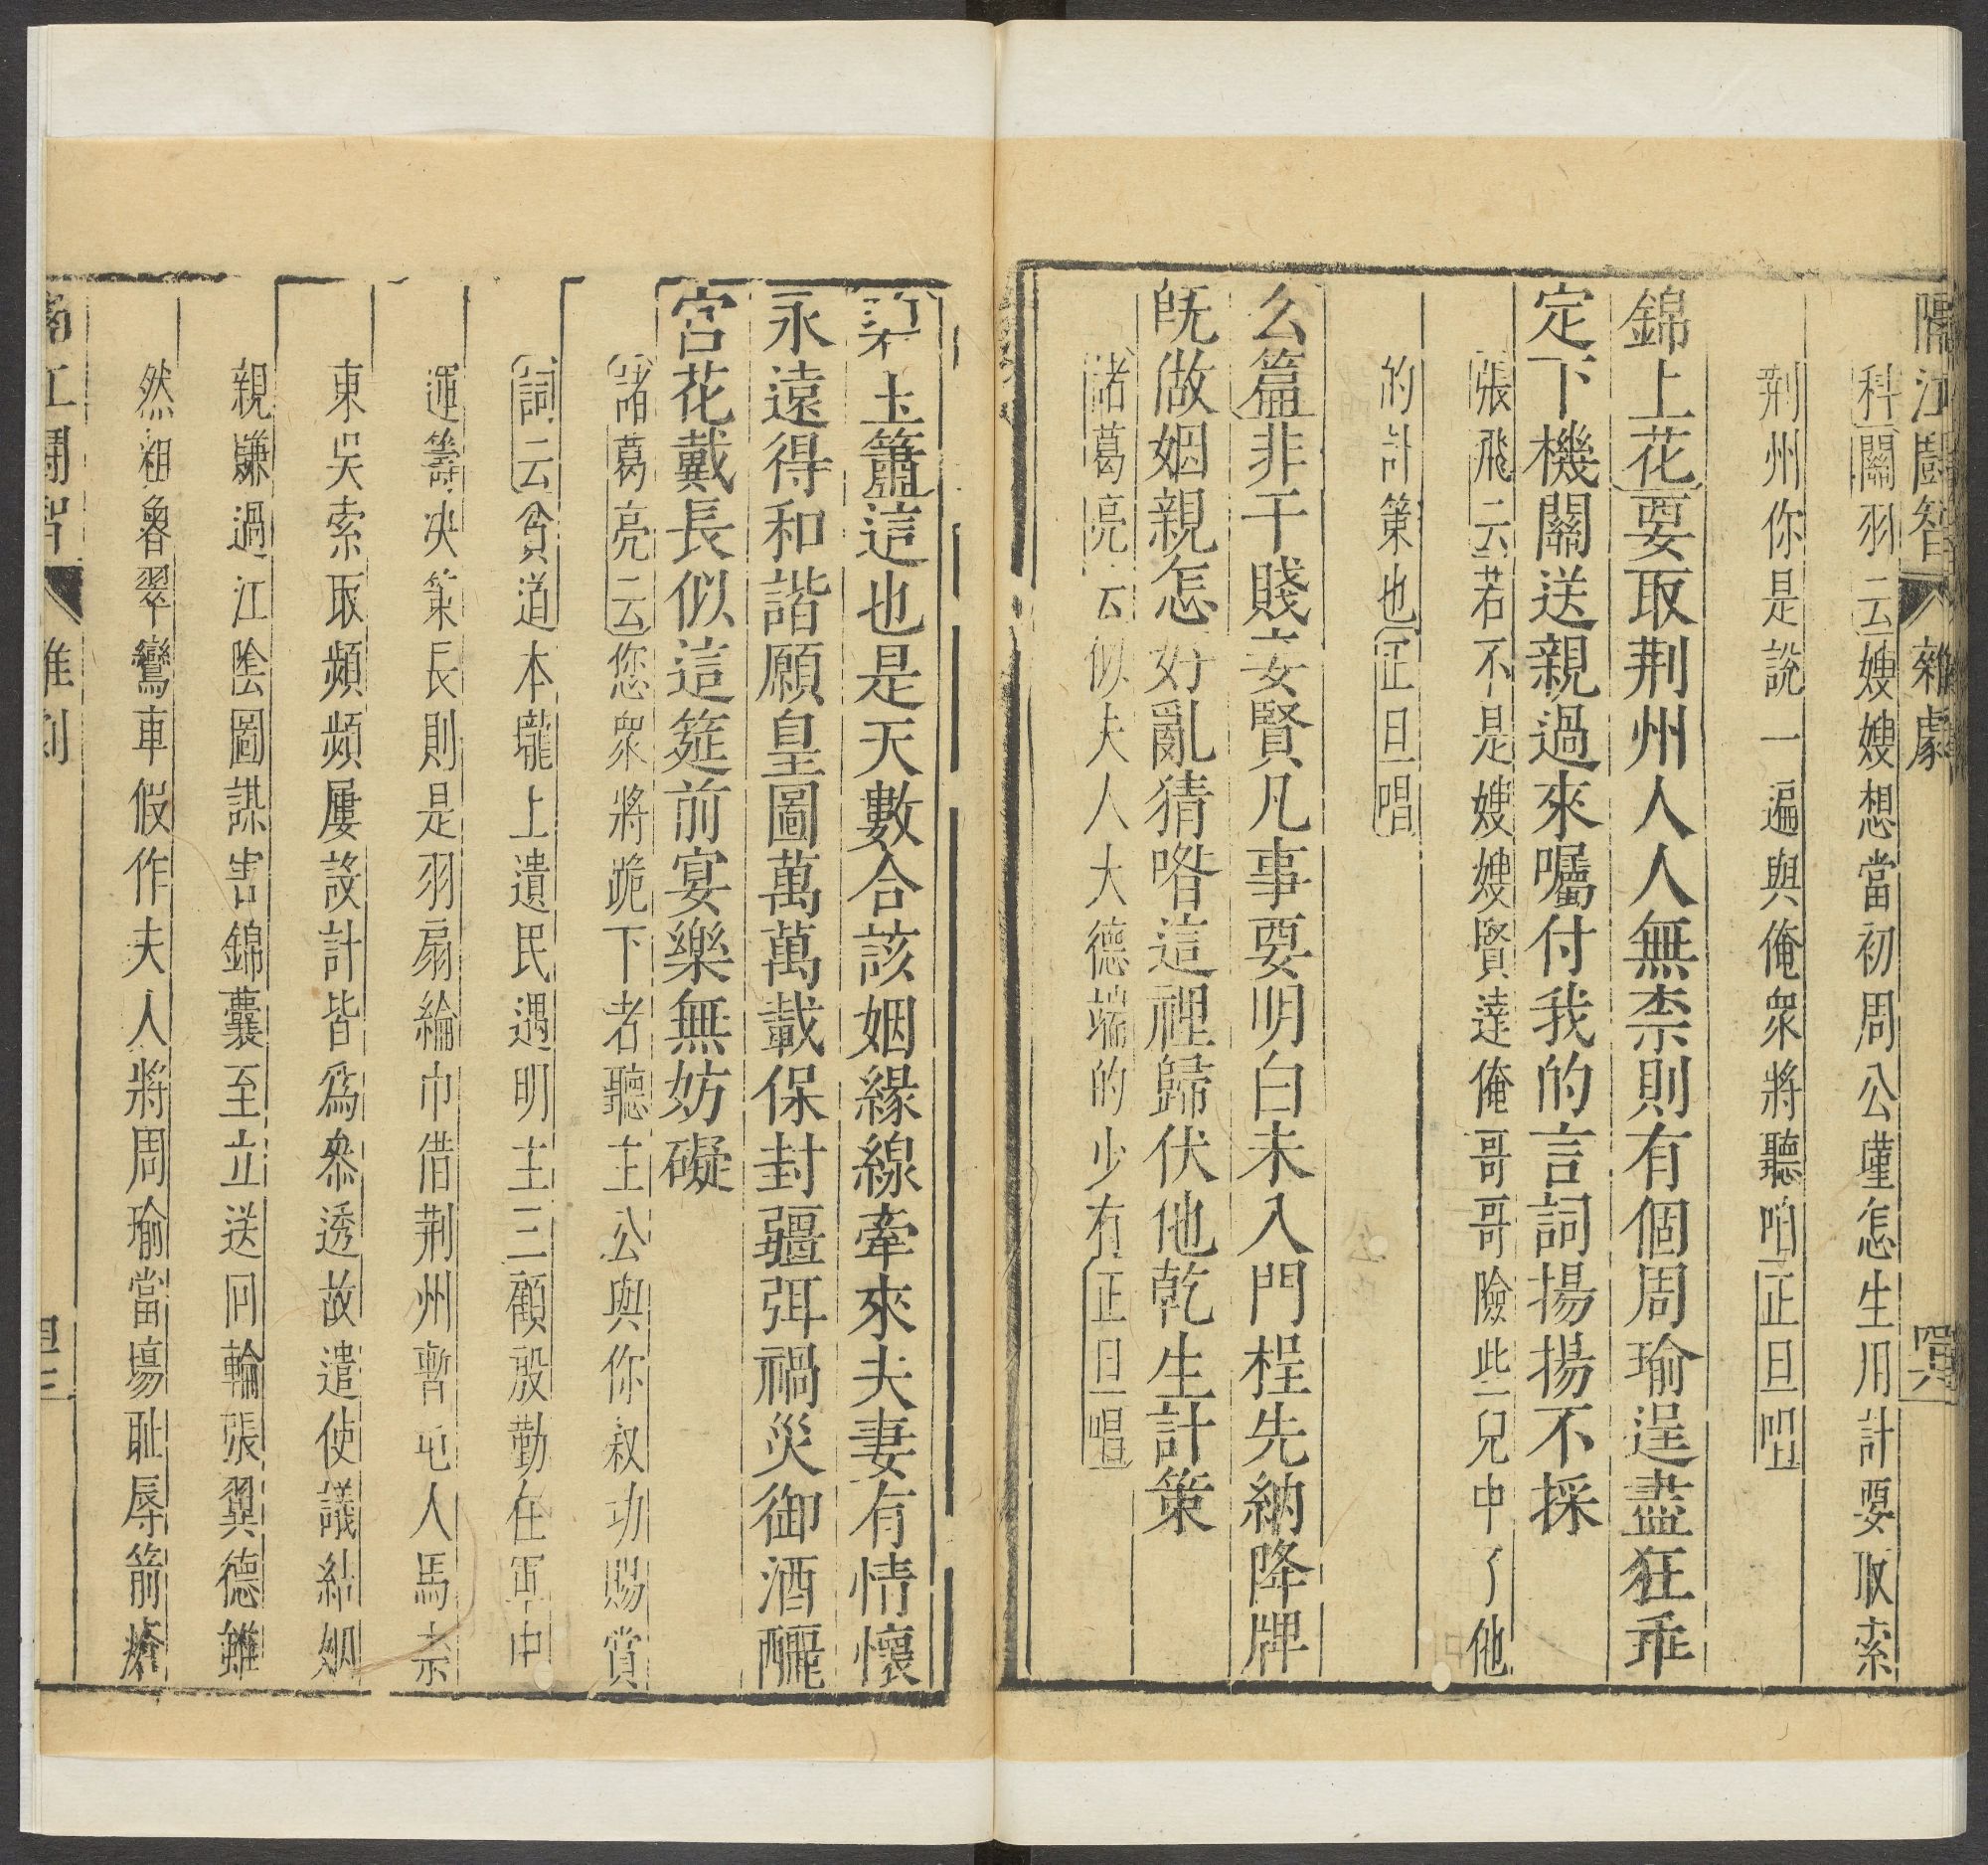 隔江鬭智 雜劇
科關羽云嫂嫂想當初周公瑾怎生用計要取索
荆州你是說一遍與俺衆將聽咱正旦唱
錦上花要取荆州人人無柰則有個周瑜逞盡狂乖
定下機關送親過來囑付我的言詞揚揚不採
張飛云若不是嫂嫂賢達俺哥哥險些兒中了他
的計策也正旦唱
么篇非干賤妾賢凡事要明白未入門桯先納降牌
旣做姻親怎好亂猜喒這裡歸伏他乾生計策
諸葛亮云似夫人大德端的少有正旦唱
玉簫這也是天數合該姻緣線牽來夫妻有情懷
永遠得和諧願皇圖萬萬載保封疆弭禍災御酒釃
宮花戴長似這筵前宴樂無妨礙
諸葛亮云您衆將跪下者聽主公與你叙功賜賞
詞云貧道本壠上遺民遇明主三顧殷勤在軍中
運籌決策長則是羽扇綸巾借荆州暫屯人馬柰
東吳索取頻頻屢設計皆爲參透故遣使議結姻
親賺過江隂圖謀害錦囊至立送囘輪張翼德雖
然粗魯翠鸞車假作夫人將周瑜當塲耻辱箭瘡
江鬭智